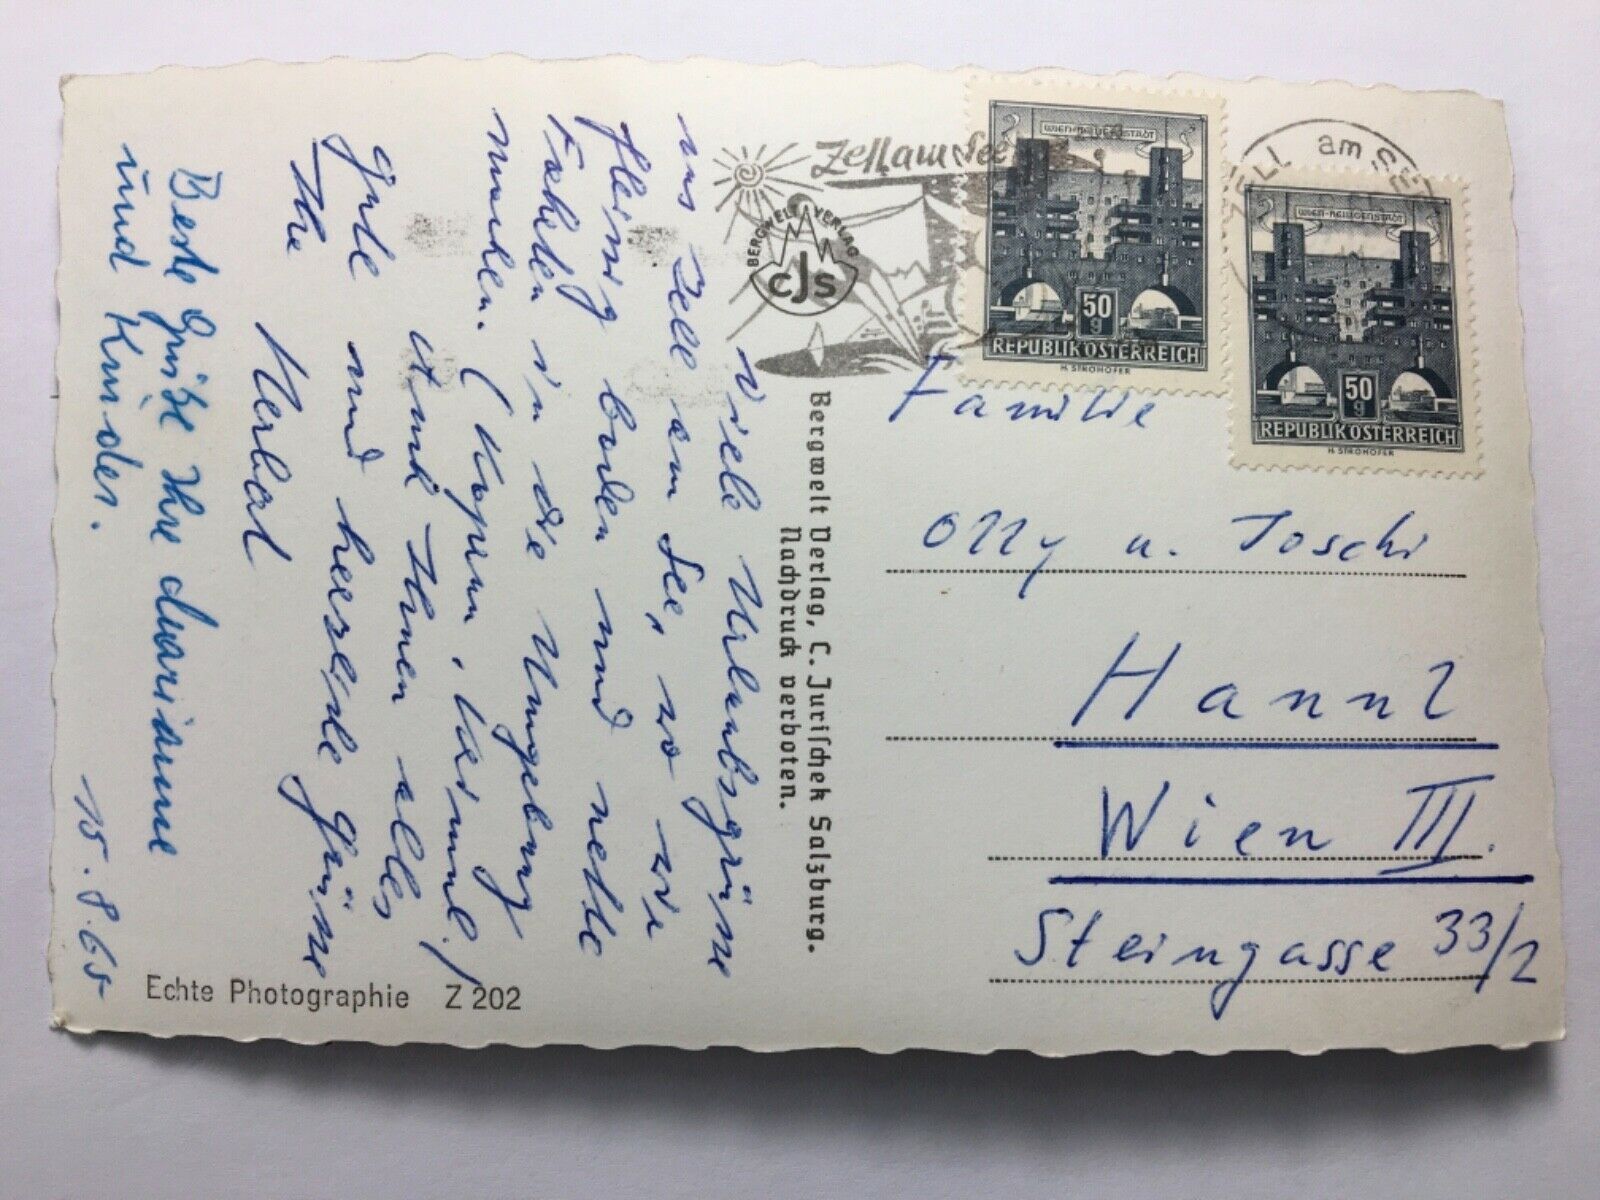 Viele Urlaubsgrüsse
aus Zell am See, wo wir
fleissig baden und nette
Fahrten in die Umgebung
machen. (Kaprun, Krimml.)
Auch Ihnen alles
gute und herzliche Grüsse
Ihr
Beste Grüße Ihre Marianne
und Kinder.
15.8.65
Echte Photographie Z 202
Bergwelt Verlag, C. Jurischek Salzburg.
Nachdruck verboten.
BERGWELT VERLAG
CJS
Zell am See
WIEN-HEILIGENSTADT
50
g
REPUBLIK ÖSTERREICH
H. STROHOFER
ZELL am SEE
WIEN-HEILIGENSTADT
50
g
REPUBLIK ÖSTERREICH
H. STROHOFER
Familie
Olly u. Joschi
Hannl
Wien III.
Steingasse 33/2